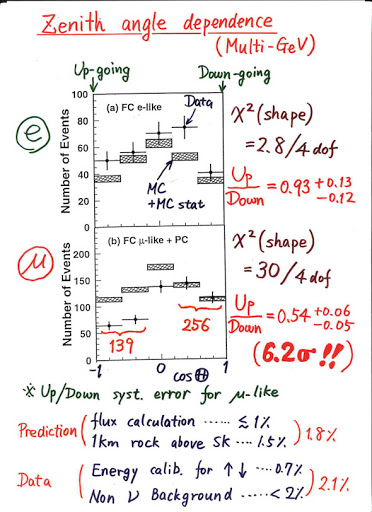 Zenith angle dependence
(Multi-GeV)
Up-going
Down-going
100
80
60
40
20
0
Number of Events
(a) FC e-like
Data
MC
+MC stat
e
χ² (shape)
= 2.8/4 dof
Up/Down = 0.93 +0.13 -0.12
200
150
100
50
0
Number of Events
(b) FC μ-like + PC
139
256
-1
0
1
cos Θ
μ
χ² (shape)
= 30/4 dof
Up/Down = 0.54 +0.06 -0.05
(6.2σ!!)
※ Up/Down syst. error for μ-like
Prediction ( flux calculation ...... ≲ 1%
1km rock above SK .... 1.5% ) 1.8%
Data ( Energy calib. for ↑↓ .... 0.7%
Non ν Background ...... < 2% ) 2.1%